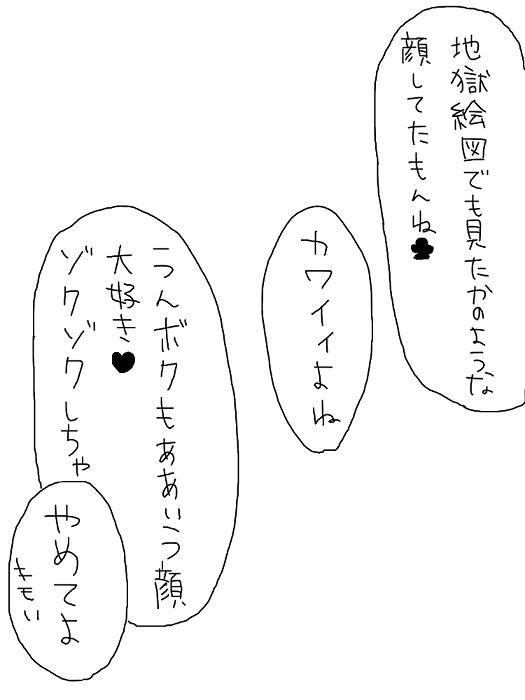 地獄絵図でも見たかのような
顔してたもんね♣
カワイイよね
うんボクもああいう顔
大好き♥
ゾクゾクしちゃ
やめてよ
キモい